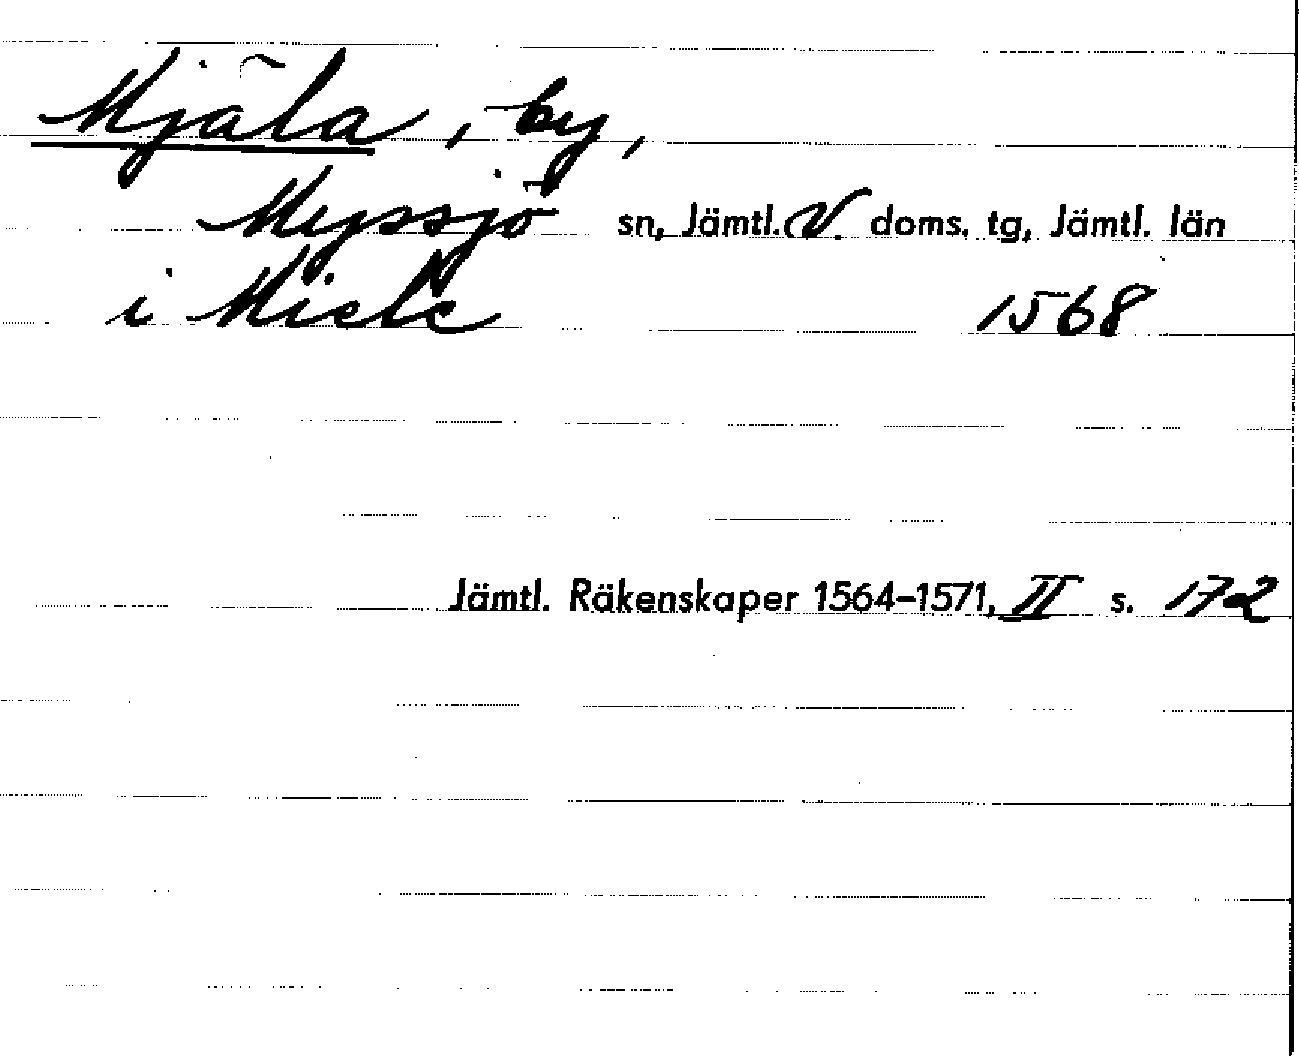 Mjäla, by,
Myssjö sn, Jämtl. V. doms. tg, Jämtl. län
i Miele 1568
Jämtl. Räkenskaper 1564-1571, II s. 172